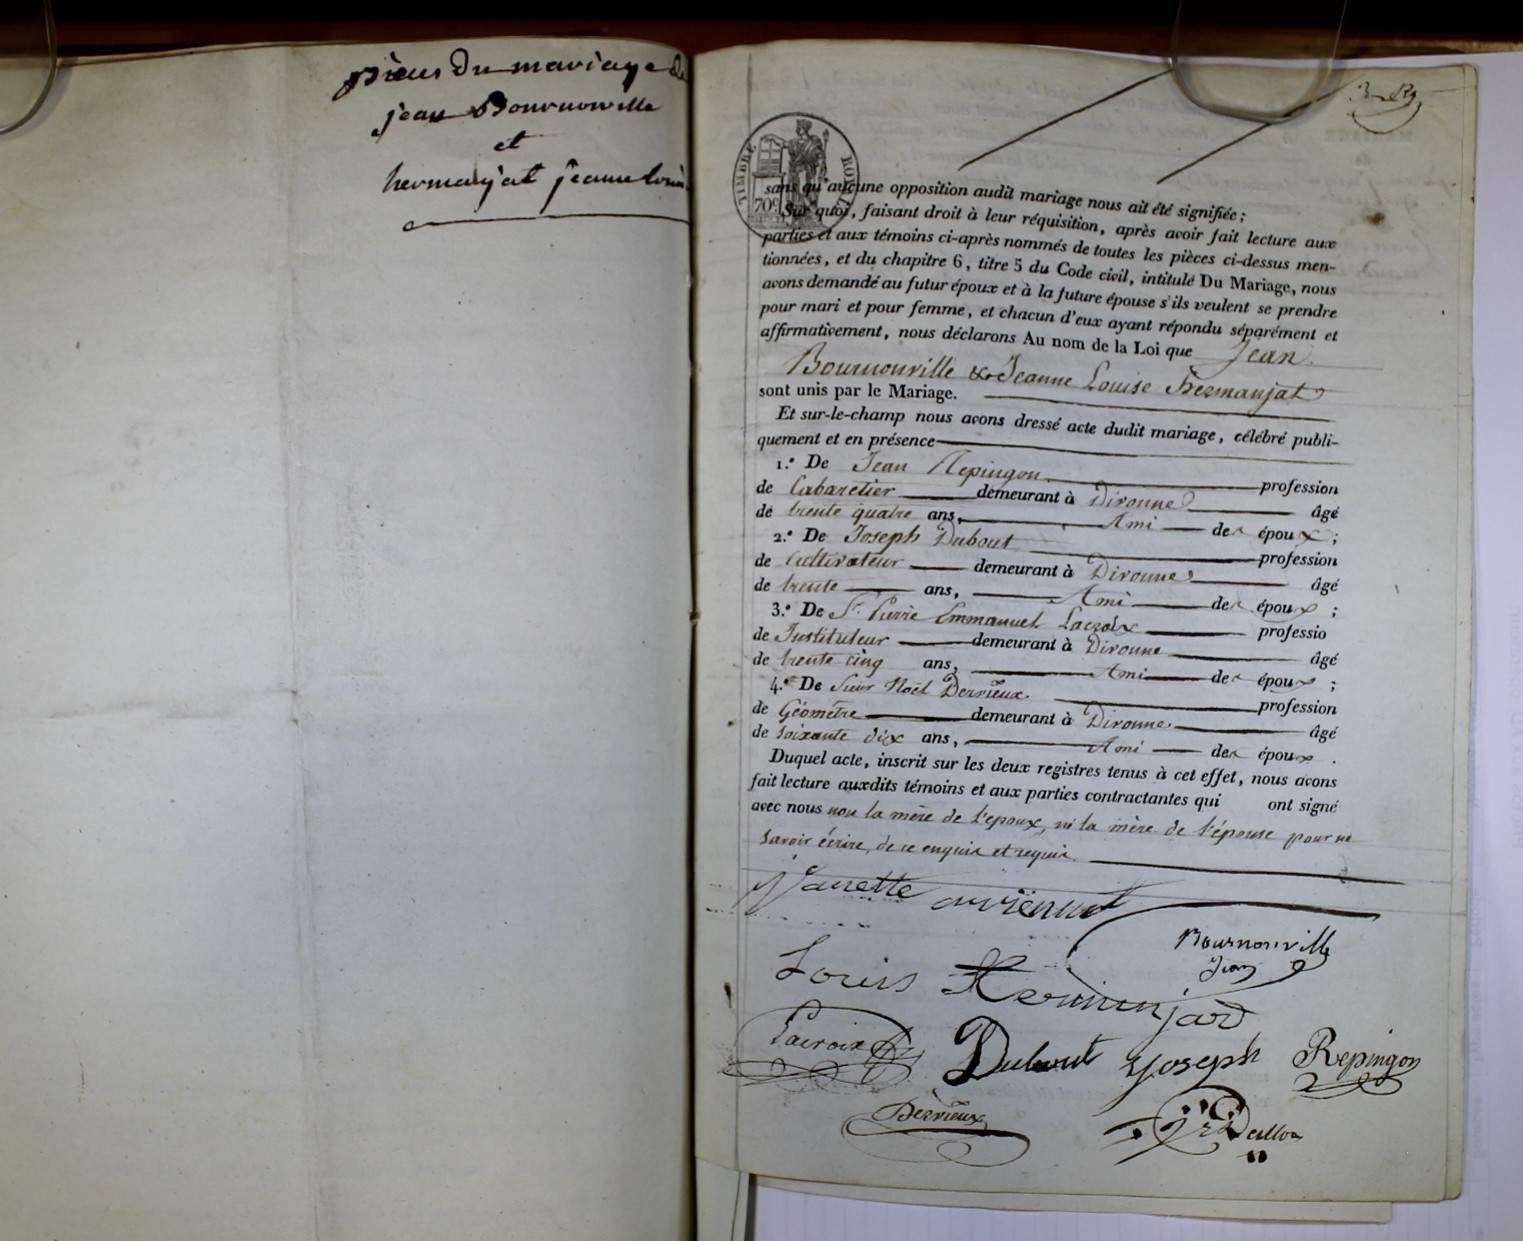 pièces du mariage de
jean Bournonville
et
hermanjat jeanne louise
TIMBRE ROYAL
70c
sans qu'aucune opposition audit mariage nous ait été signifiée ;
Sur quoi, faisant droit à leur réquisition, après avoir fait lecture aux
parties et aux témoins ci-après nommés de toutes les pièces ci-dessus men-
tionnées, et du chapitre 6, titre 5 du Code civil, intitulé Du Mariage, nous
avons demandé au futur époux et à la future épouse s'ils veulent se prendre
pour mari et pour femme, et chacun d'eux ayant répondu séparément et
affirmativement, nous déclarons Au nom de la Loi que Jean
Bournonville & Jeanne Louise Hermanjat
sont unis par le Mariage.
Et sur-le-champ nous avons dressé acte dudit mariage, célébré publi-
quement et en présence
1.° De Jean Repingon profession
de Cabaretier demeurant à Divonne âgé
de trente quatre ans, Ami des époux ;
2.° De Joseph Dubout profession
de Cultivateur demeurant à Divonne âgé
de trente ans, Ami des époux ;
3.° De Sr. Pierre Emmanuel Lacroix professio
de Instituteur demeurant à Divonne âgé
de trente cinq ans, Ami des époux ;
4.° De Sieur Noël Dervieux profession
de Géomètre demeurant à Divonne âgé
de soixante dix ans, Ami des époux .
Duquel acte, inscrit sur les deux registres tenus à cet effet, nous avons
fait lecture auxdits témoins et aux parties contractantes qui ont signé
avec nous non la mère de l'epoux, ni la mère de l'épouse pour ne
savoir écrire, de ce enquis et requis.
Bournonville
Jean
Louis Hermenjard
Lacroix Dubout Joseph Repingon
Dervieux